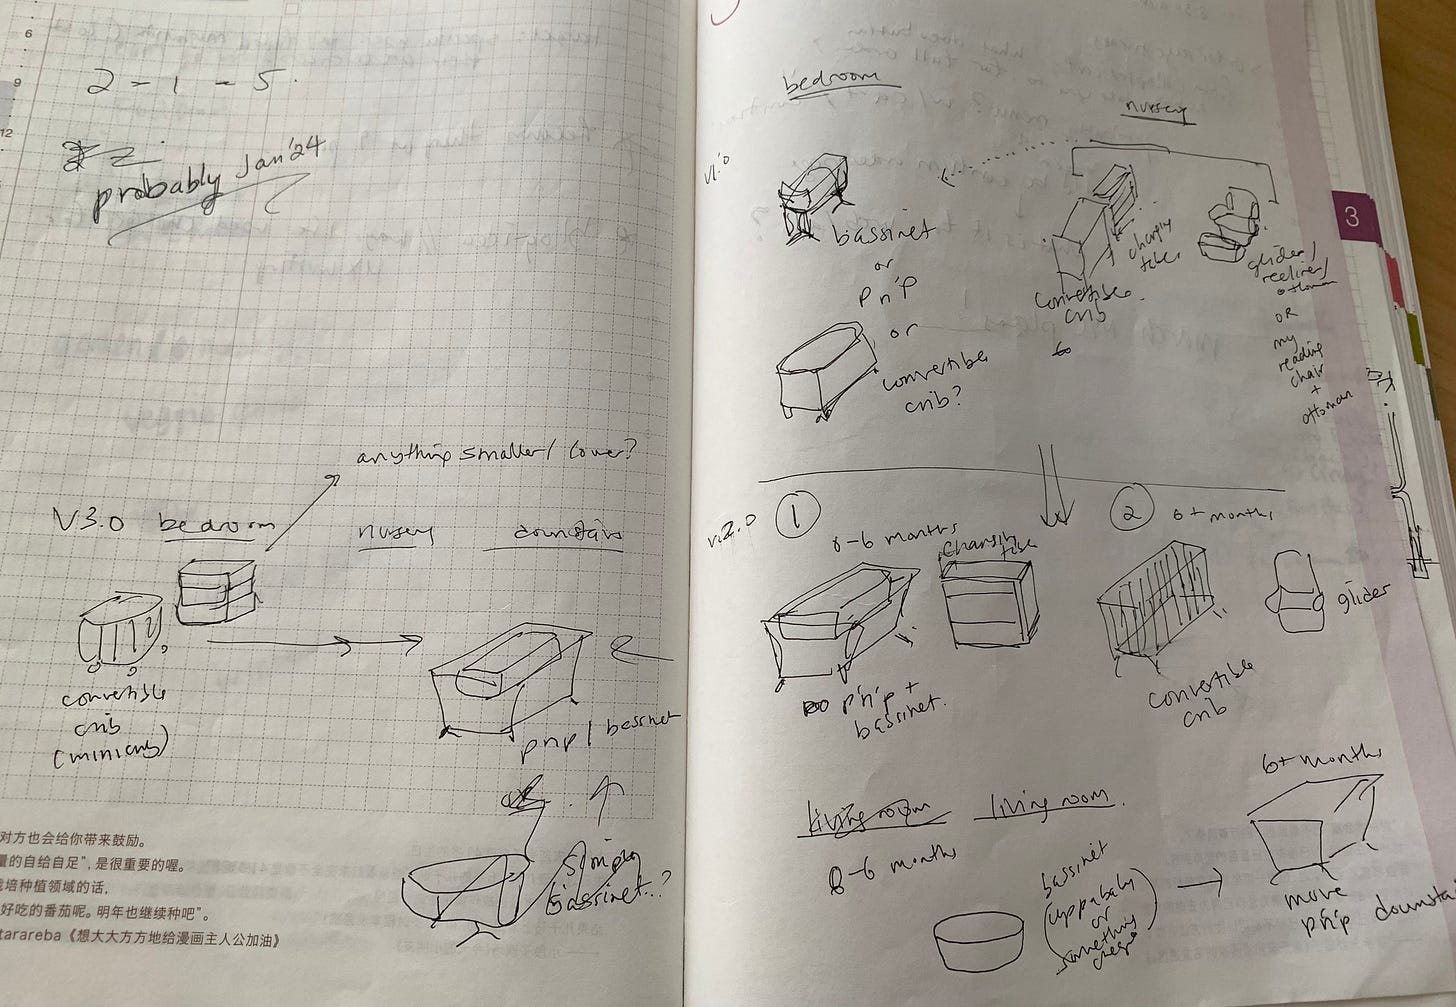 6
9
12
2 - 1 - 5.
probably Jan '24
anything smaller / lower?
V3.0 bedroom
nursery
downstairs
convertible
crib
(mini crib)
pnp / bassinet
simple
bassinet..?
对方也会给你带来鼓励。
量的自给自足”,是很重要的喔。
栽培种植领域的话,
好吃的番茄呢。明年也继续种吧”。
tarareba《想大大方方地给漫画主人公加油》
bedroom
nursery
v1.0
bassinet
or
P n' P
or
convertible
crib?
changing
table
convertible
crib
glider/
recliner/
ottoman
OR
my
reading
chair
+
ottoman
3
v.2.0
1
0-6 months
changing
table
pn'p +
bassinet.
2
6+ months
glider
convertible
crib
living room
living room.
0-6 months
bassinet
(uppababy
or
something
6+ months
move
pn'p downstai